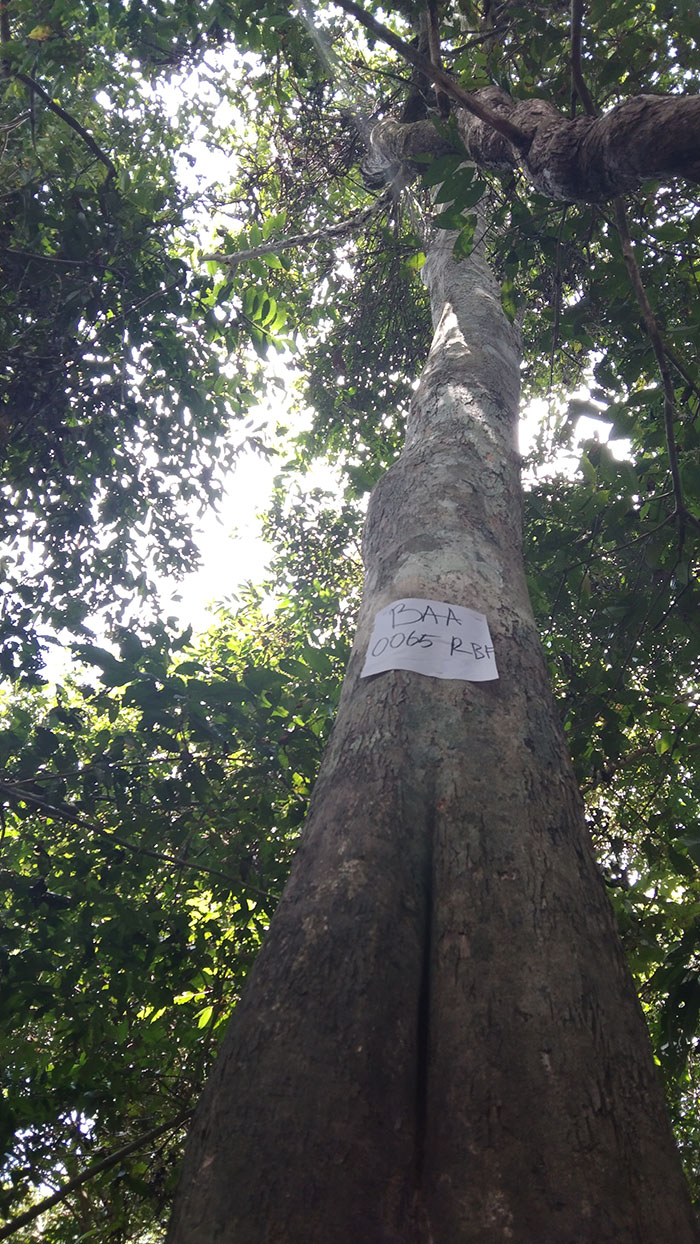 BAA
0065-RBF